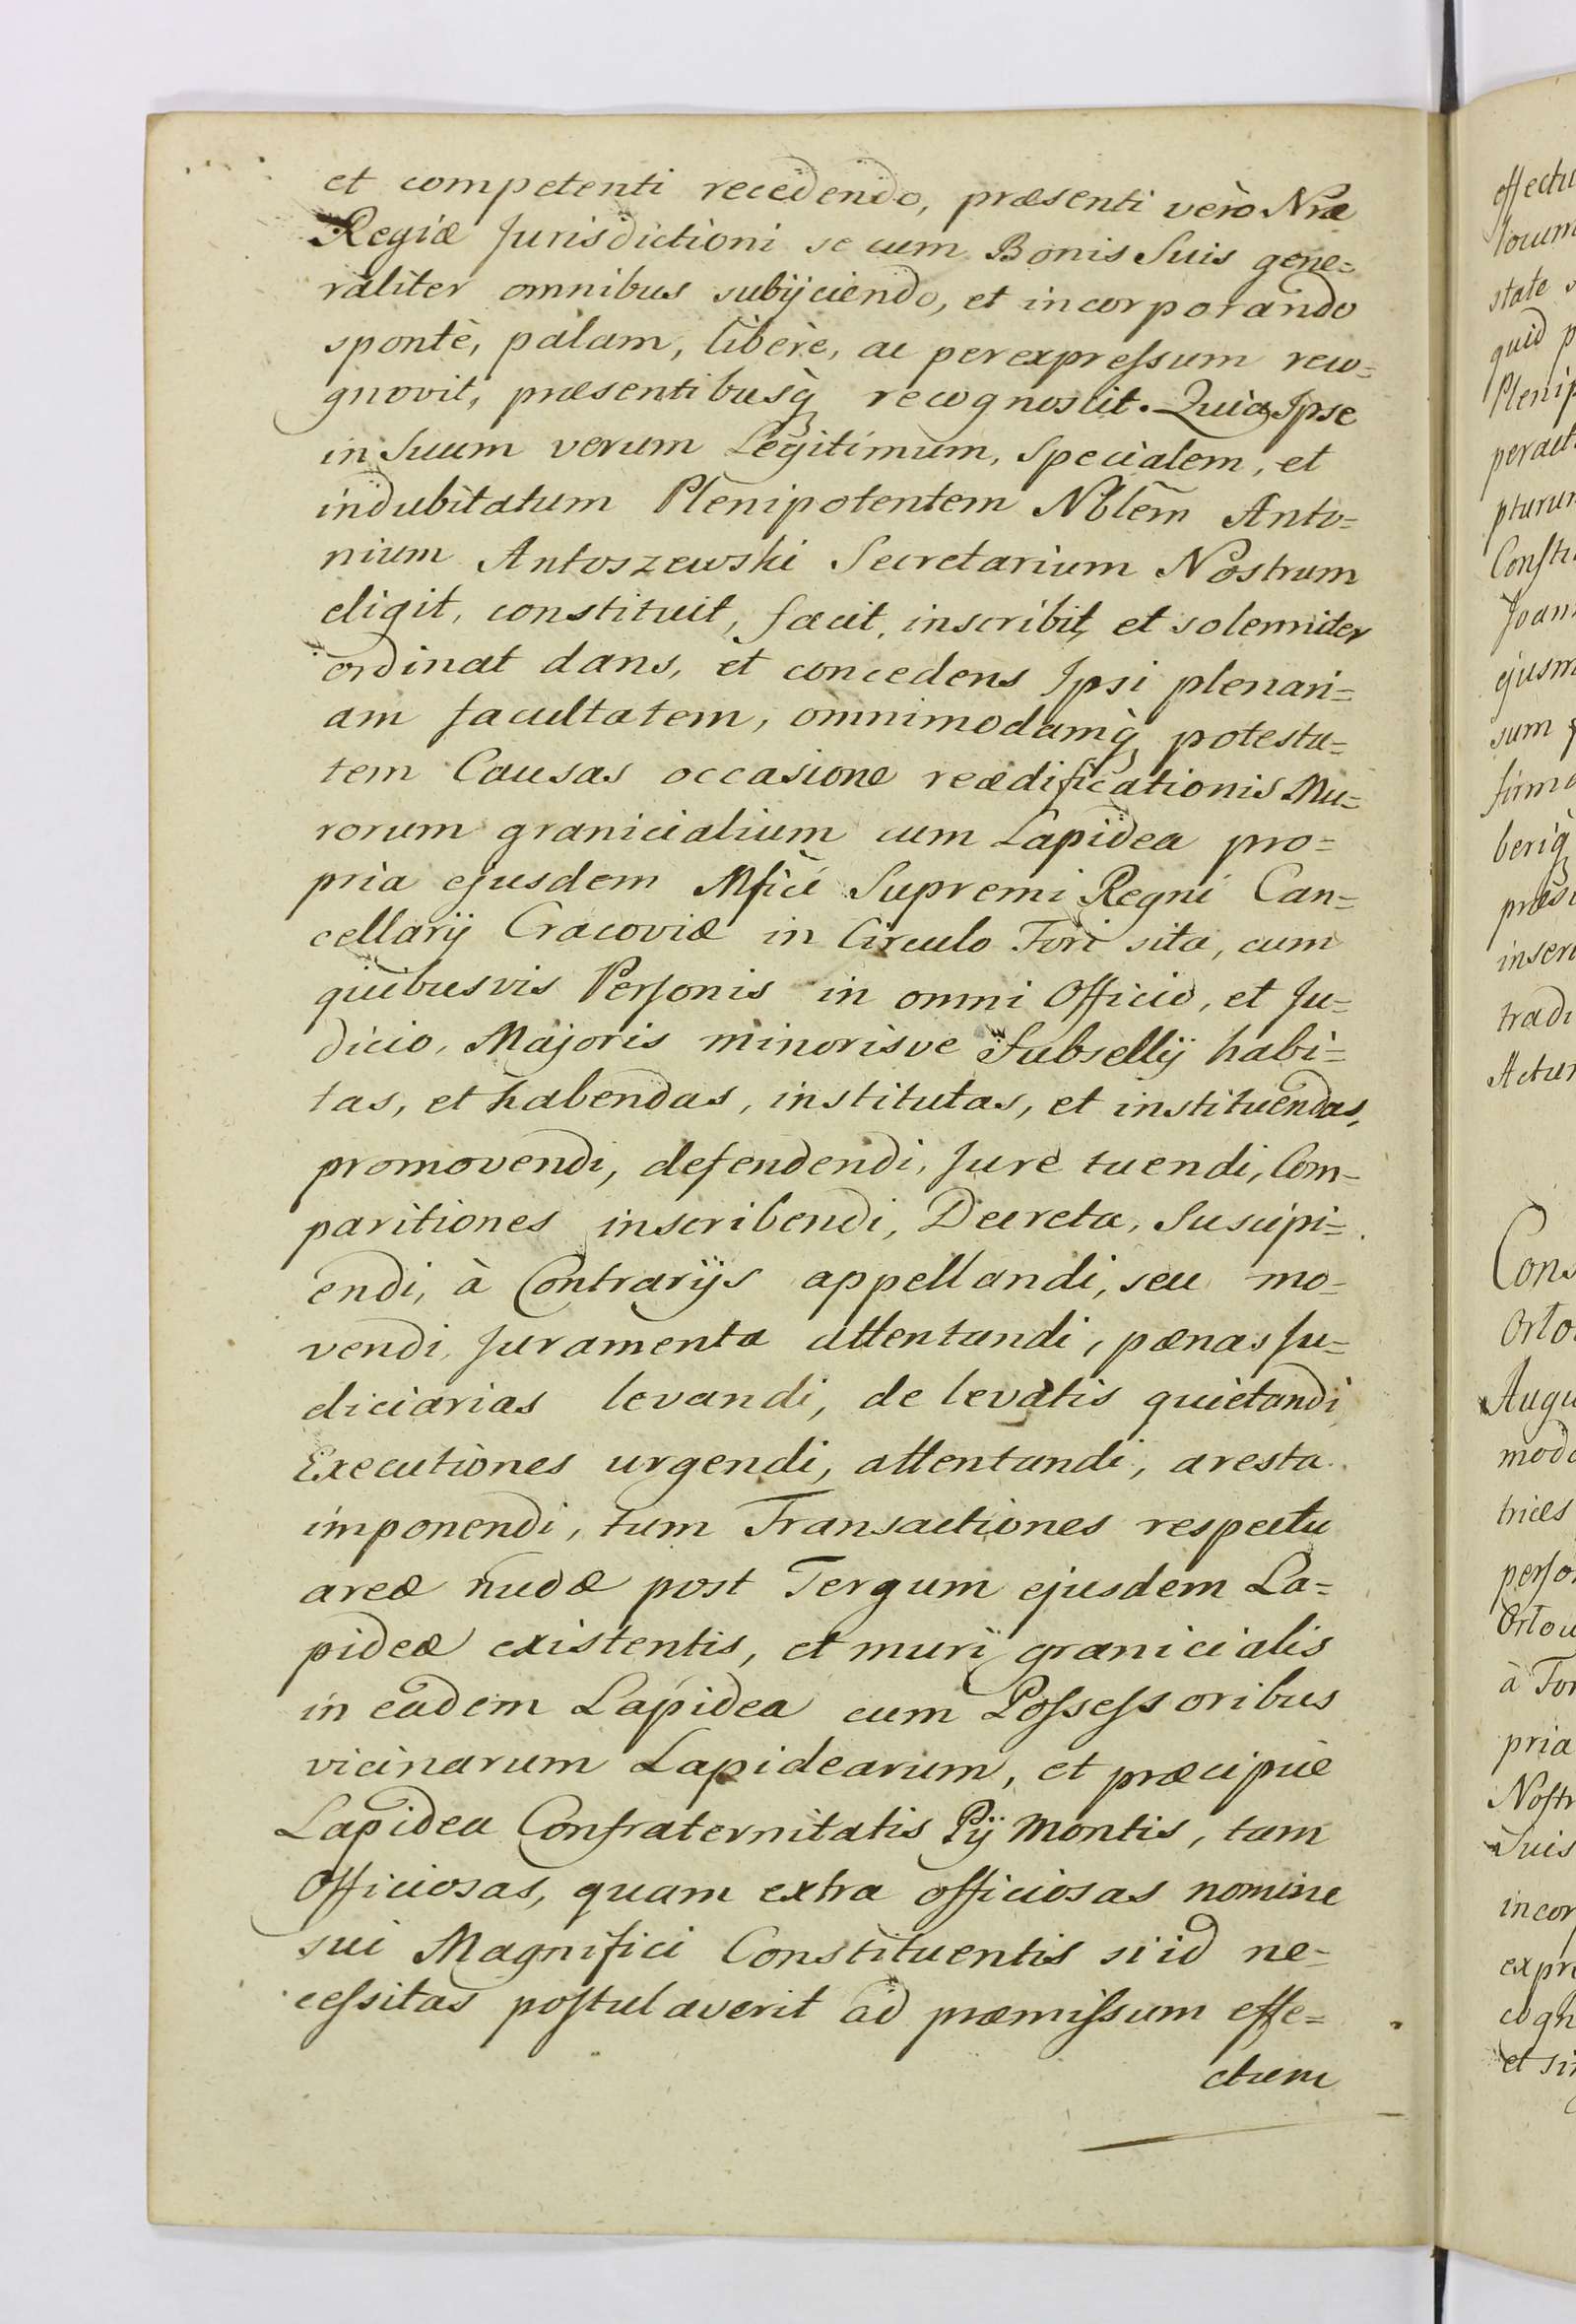 et competenti recedendo, præsenti verò Nræ
Regiæ Jurisdictioni se cum Bonis Suis gene=
raliter omnibus subijciendo, et incorporando
spontè, palam, liberè, ac per expreſsum reco=
gnovit, præsentibusq̀ recognoscit. Quia Ipse
in Suum verum Legitimum, Specialem, et
indubitatum Plenipotentem Nblem̄ Anto=
nium Antoszewski Secretarium Nostrum
eligit, constituit, facit, inscribit, et solemniter
ordinat dans, et concedens Ipsi plenari=
am facultatem, omnimodamq̀ potesta=
tem Causas occasione reædificationis Mu=
rorum granicialium cum Lapidea pro=
pria ejusdem Mfici Supremi Regni Can=
cellarij Cracoviæ in Circulo Fori sita, cum
quibusvis Perſonis in omni Officio, et Ju=
dicio, Majoris minorisve Subsellij habi=
tas, et habendas, institutas, et instituendas,
promovendi, defendendi, Jure tuendi, Com=
paritiones inscribendi, Decreta, Suscipi=
endi, à Contrarijs appellandi, seu mo=
vendi, Juramenta attentandi, pænas Ju=
diciarias levandi, de levatis quietandi
Executiones urgendi, attentandi, aresta
imponendi, tum Transactiones respectu
areæ nudæ post Tergum ejusdem La=
pideæ existentis, et muri granicialis
in eadem Lapidea cum Poſseſsoribus
vicinarum Lapidearum, et præcipuè
Lapidea Confraternitatis Pij Montis, tam
Officiosas, quam extra officiosas nomine
sui Magnifici Constituentis si id ne=
ceſsitas poſtulaverit ad præmiſsum effe=
ctum
effectu
state
quid p
Plenip
pturur
Joan
ejusm
sum
firme
beriq̀
inser
tradi
Actur
Cons
Orto
Augu
modo
trices
perſo
à For
pria
Noſtr
Suis
incor
expre
cogn
et si